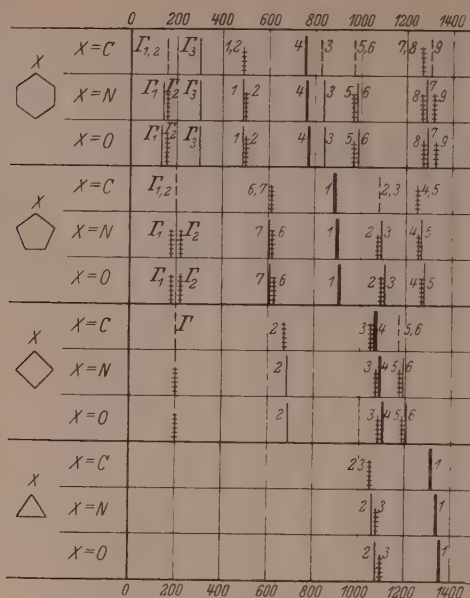 0 200 400 600 800 1000 1200 1400
X
X=C Γ1,2 Γ3 1,2 4 3 5,6 7,8 9
X=N Γ1 Γ2 Γ3 1 2 4 3 5 6 8 7 9
X=O Γ1 Γ2 Γ3 1 2 4 3 5 6 8 7 9
X
X=C Γ1,2 6,7 1 2,3 4,5
X=N Γ1 Γ2 7 6 1 2 3 4 5
X=O Γ1 Γ2 7 6 1 2 3 4 5
X
X=C Γ 2 3 4 5,6
X=N 2 3 4 5 6
X=O 2 3 4 5 6
X
X=C 2 3 1
X=N 2 3 1
X=O 2 3 1
0 200 400 600 800 1000 1200 1400